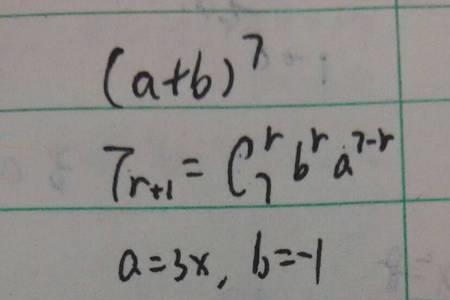 (a+b)^7
T_{r+1} = C_7^r b^r a^{7-r}
a=3x, b=-1